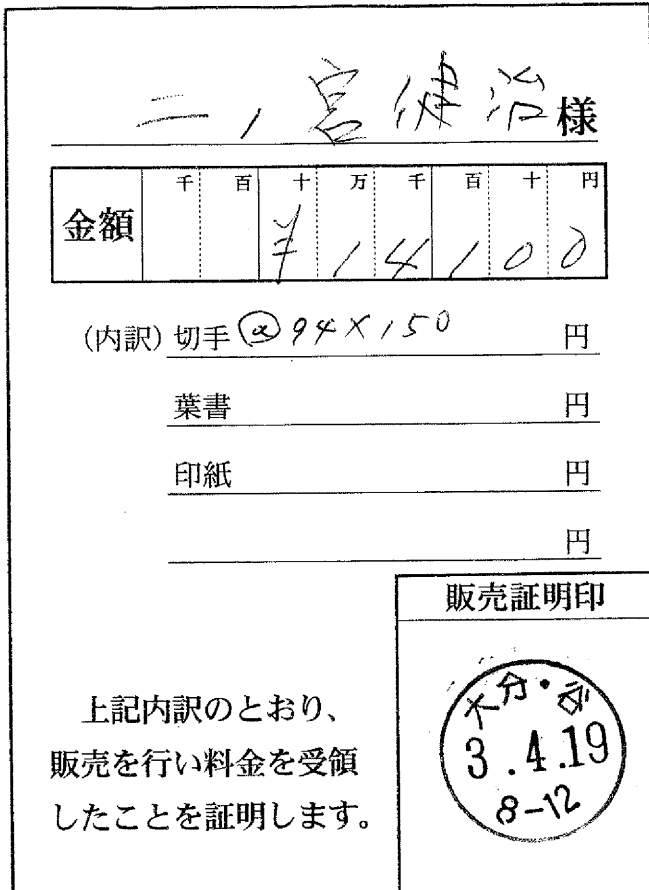 二ノ宮健治様
金額 千 百 十 万 千 百 十 円
¥14100
(内訳) 切手 @94×150 円
葉書 円
印紙 円
円
販売証明印
上記内訳のとおり、
販売を行い料金を受領
したことを証明します。
大分・
3.4.19
8-12